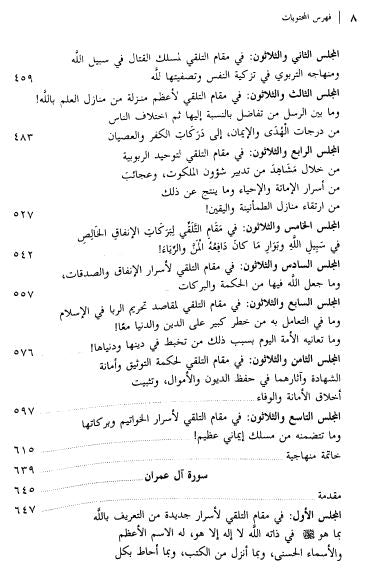 ٨ | فهرس المحتويات
المجلس الثاني والثلاثون: في مقام التلقي لمسلك القتال في سبيل اللَّه
ومنهاجه التربوي في تزكية النفس وتصفيتها للَّه ٤٥٩
المجلس الثالث والثلاثون: في مقام التلقي لأعظم منزلة من منازل العلم باللَّه!
وما بين الرسل من تفاضل بالنسبة إليها ثم اختلاف الناس
من درجات الْهُدَى والإيمان، إلى دَرَكَاتِ الكفر والعصيان ٤٨٣
المجلس الرابع والثلاثون: في مقام التلقي لتوحيد الربوبية
من خلال مَشَاهِدَ من تدبير شؤون الملكوت، وعجائب
من أسرار الإماتة والإحياء وما ينتج عن ذلك
من ارتقاء منازل الطمأنينة واليقين! ٥٢٧
المجلس الخامس والثلاثون: في مَقَامِ التَّلَقِّي لِبَرَكَاتِ الإنفاقِ الْخَالِصِ
في سَبِيلِ اللَّهِ وبَوَارِ مَا كانَ دَافِعُهُ الْمَنَّ والرِّيَاءَ! ٥٤٢
المجلس السادس والثلاثون: في مقام التلقي لأسرار الإنفاق والصدقات،
وما جعل اللَّه فيها من الحكمة والبركات ٥٥٧
المجلس السابع والثلاثون: في مقام التلقي لمقاصد تحريم الربا في الإسلام
وما في التعامل به من خطر كبير على الدين والدنيا معًا!
وما تعانيه الأمة اليوم بسبب ذلك من تخبط في دينها ودنياها! ٥٧٦
المجلس الثامن والثلاثون: في مقام التلقي لحكمة التوثيق وأمانة
الشهادة وآثارهما في حفظ الديون والأموال، وتثبيت
أخلاق الأمانة والوفاء ٥٩٧
المجلس التاسع والثلاثون: في مقام التلقي لأسرار الخواتيم وبركاتها
وما تتضمنه من مسلك إيماني عظيم! ٦١٥
خاتمة منهاجية ٦٣٩
سورة آل عمران
مقدمة ٦٤٥
المجلس الأول: في مقام التلقي لأسرار جديدة من التعريف باللَّه ٦٤٧
بما هو ﷻ في ذاته اللَّه لا إله إلا هو، له الاسم الأعظم
والأسماء الحسنى، وبما أنزل من الكتب، وبما أحاط بكل